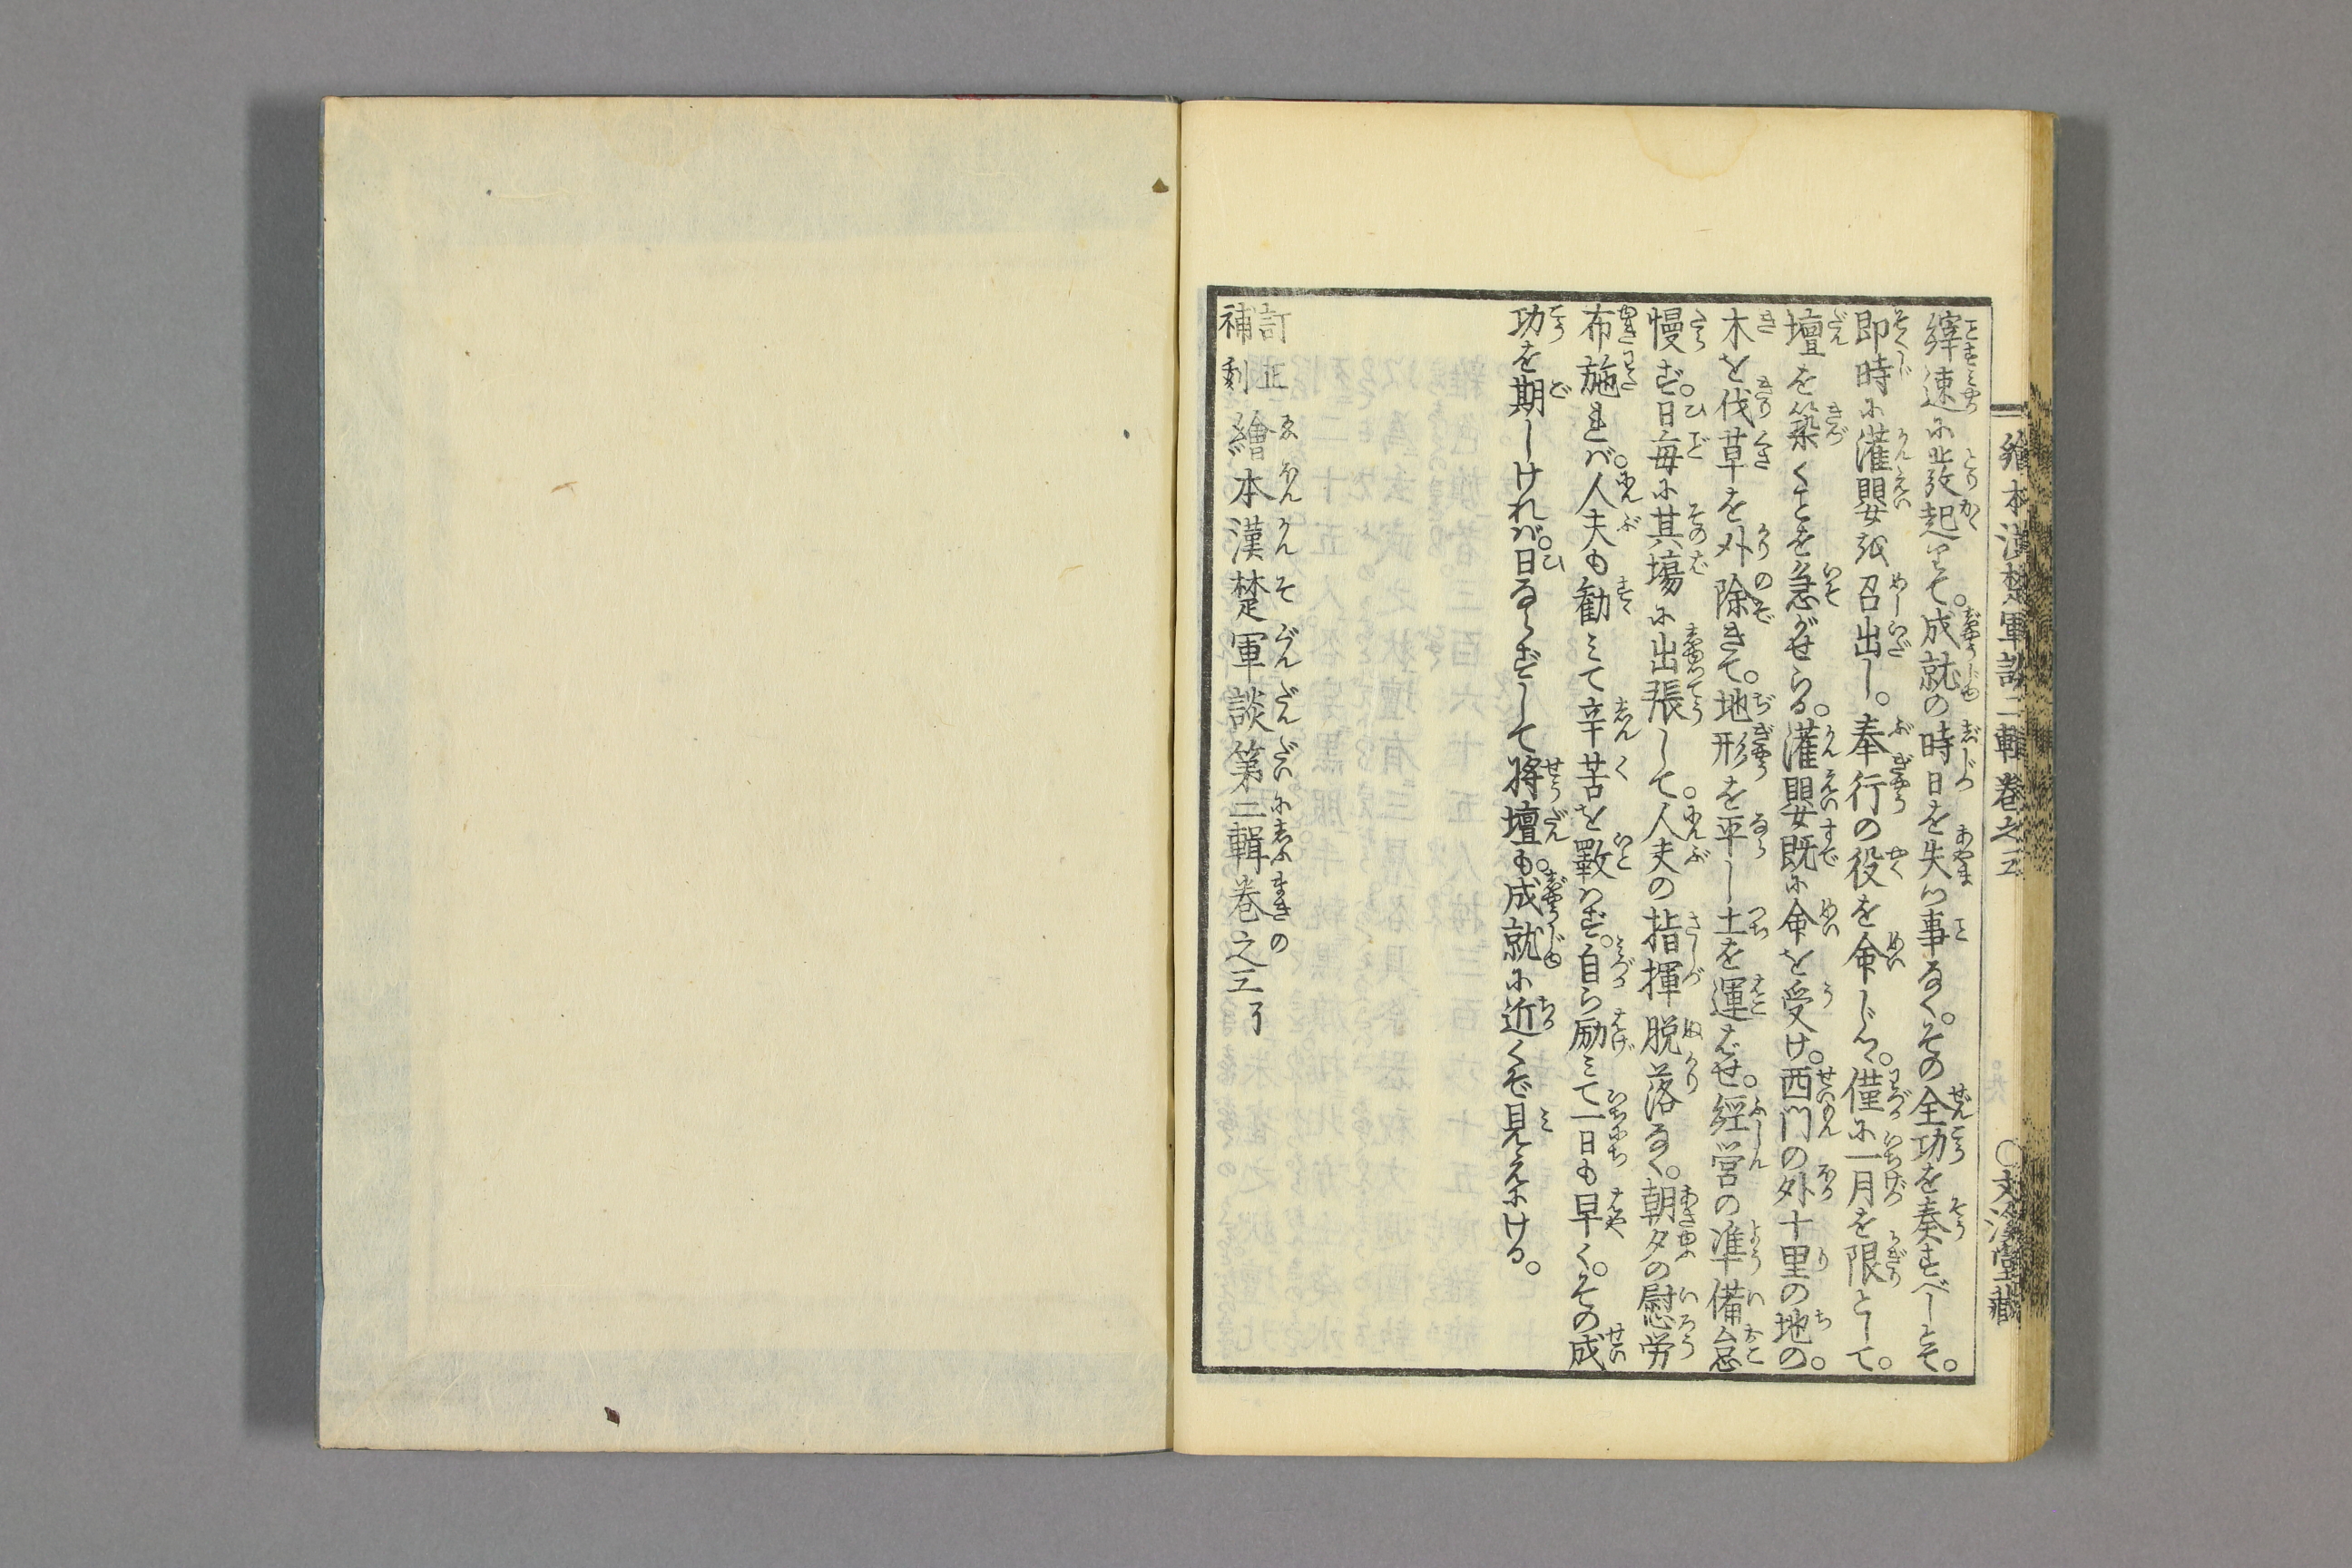 繪本漢楚軍談二輯卷之三 ○文溪堂藏
縡速に發起りて。成就の時日を失つ事なく。その全功を奏すべしとて。
即時に灌嬰を召出し。奉行の役を命じつ。僅に一月を限として。
壇を築くことを急がせらる。灌嬰既に命を受け。西門の外十里の地の。
木を伐草を外除きて。地形を平し土を運ばせ。經営の準備怠
慢ず。日毎に其場に出張して。人夫の指揮脱落なく。朝夕の慰労
布施れば。人夫も勧みて辛苦を斁はず。自ら励みて一日も早く。その成
功を期しければ。日ならずして將壇も。成就に近くぞ見えにける。
訂正補刻繪本漢楚軍談第二輯卷之三了